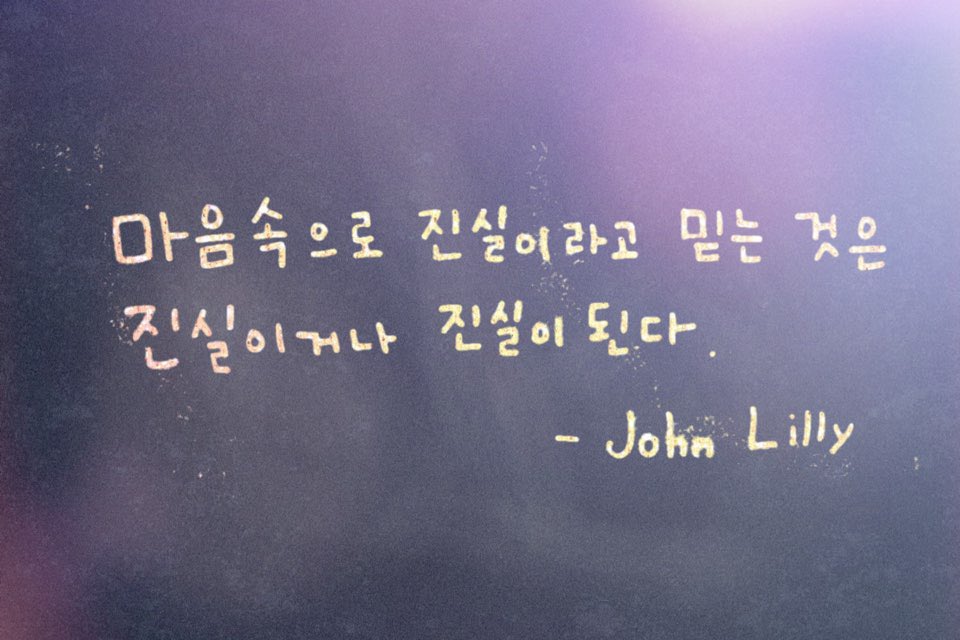 마음속으로 진실이라고 믿는 것은
진실이거나 진실이 된다.
- John Lilly